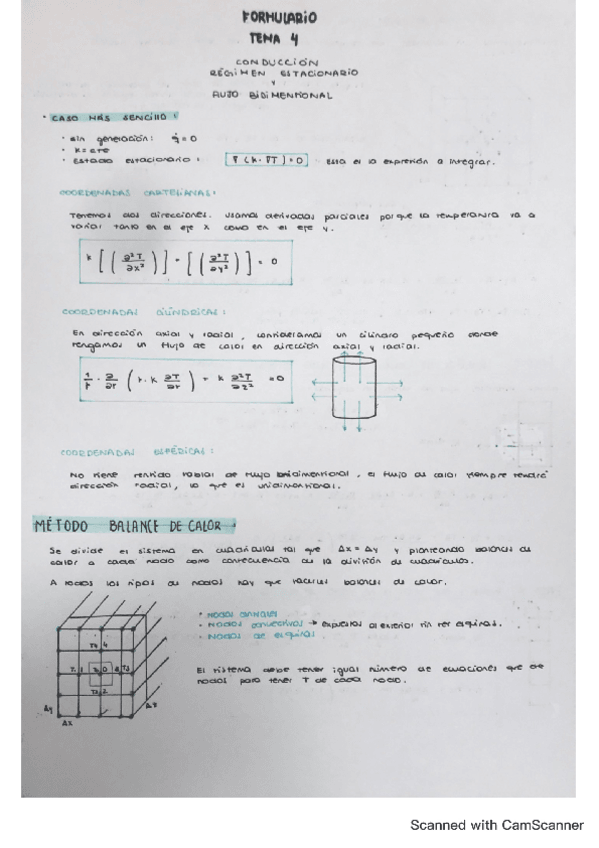 FORMULARIO
TEMA 4
CONDUCCIÓN
RÉGIMEN ESTACIONARIO
Y
FLUJO BIDIMENSIONAL
• CASO MÁS SENCILLO:
• sin generación: q̇ = 0
• K = cte
• Estado estacionario: ∇(k·∇T) = 0 Esta es la expresión a integrar.
COORDENADAS CARTESIANAS:
Tenemos dos direcciones. Usamos derivadas parciales porque la temperatura va a
variar tanto en el eje X como en el eje y.
k [(∂²T/∂x²)] + [(∂²T/∂y²)] = 0
COORDENADAS CILÍNDRICAS:
En dirección axial y radial, consideramos un cilindro pequeño donde
tengamos un flujo de calor en dirección axial y radial.
1/r · ∂/∂r (r · k ∂T/∂r) + k ∂²T/∂z² = 0
COORDENADAS ESFÉRICAS:
No tiene sentido hablar de flujo bidimensional, el flujo de calor siempre tendrá
dirección radial, lo que es unidimensional.
MÉTODO BALANCE DE CALOR:
Se divide el sistema en cuadrículas tal que Δx = Δy y planteando balances de
calor a cada nodo como consecuencia de la división de cuadrículos.
A todos los tipos de nodos hay que hacerles balances de calor.
• NODOS
• NODOS convectivos → expuestos al exterior sin ser esquinas.
• NODOS de esquinas.
T4 4
T1 1 0 3 T3
T2 2
El sistema debe tener igual número de ecuaciones que de
nodos para tener T de cada nodo.
Δy
Δx
Scanned with CamScanner